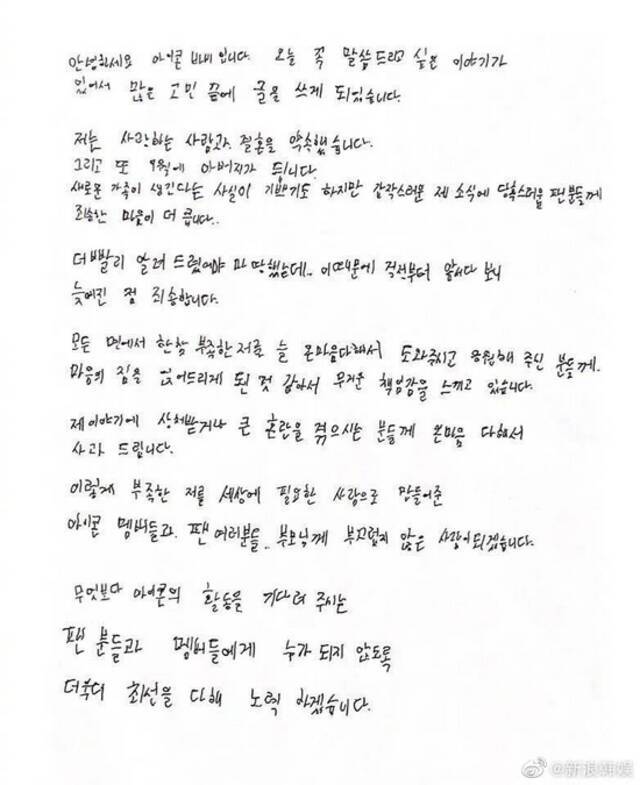 안녕하세요 아이콘 바비입니다. 오늘 꼭 말씀드리고 싶은 이야기가
있어서 많은 고민 끝에 글을 쓰게 되었습니다.
저는 사랑하는 사람과 결혼을 약속했습니다.
그리고 또 9월에 아버지가 됩니다.
새로운 가족이 생긴다는 사실이 기쁘기도 하지만 갑작스러운 제 소식에 당혹스러울 팬분들께
죄송한 마음이 더 큽니다..
더 빨리 알려 드렸어야 마땅했는데.. 이 때문에 걱정부터 앞서다 보니
늦어진 점 죄송합니다.
모든 면에서 한참 부족한 저를 늘 온마음다해서 도와주시고 응원해 주신 분들께.
마음의 짐을 얹어드리게 된 것 같아서 무거운 책임감을 느끼고 있습니다.
제 이야기에 상처받거나 큰 혼란을 겪으시는 분들께 온마음 다해서
사과 드립니다.
이렇게 부족한 저를 세상에 필요한 사람으로 만들어준
아이콘 멤버들과. 팬 여러분들.. 부모님께 부끄럽지 않은 사람이되겠습니다.
무엇보다 아이콘의 활동을 기다려 주시는
팬 분들과 멤버들에게 누가 되지 않도록
더욱더 최선을 다해 노력 하겠습니다.
@新浪韩娱